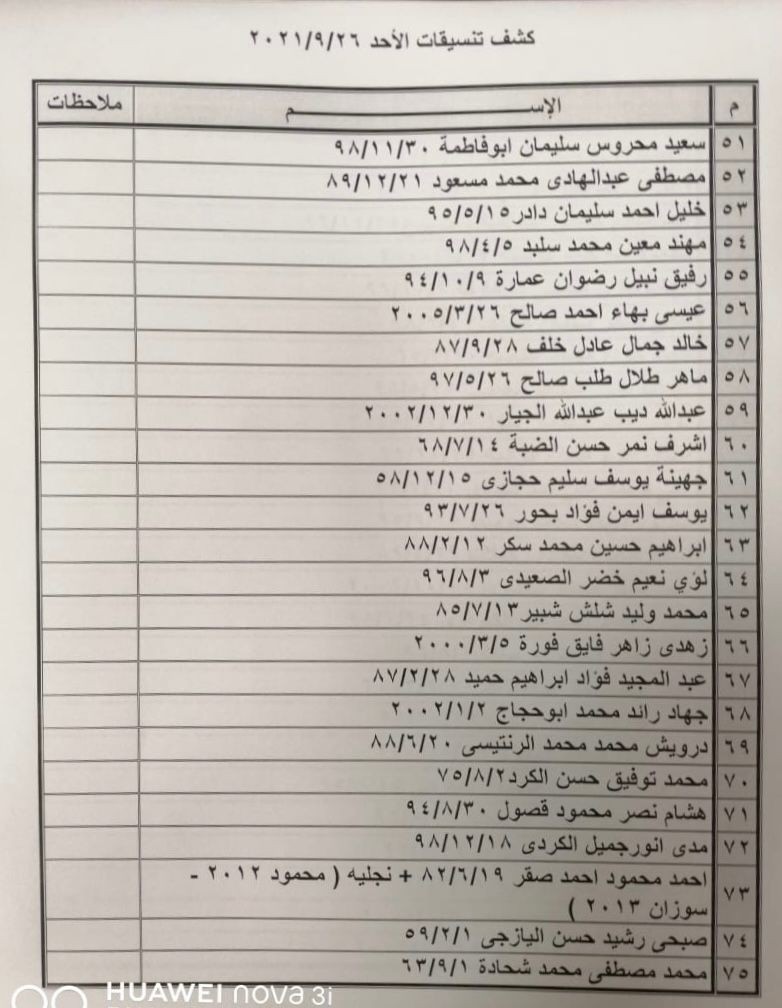 كشف تنسيقات الأحد ٢٠٢١/٩/٢٦
م الإســـــــــــــم ملاحظات
٥١ سعيد محروس سليمان ابوفاطمة ٩٨/١١/٣٠
٥٢ مصطفى عبدالهادى محمد مسعود ٨٩/١٢/٢١
٥٣ خليل احمد سليمان دادر ٩٥/٥/١٥
٥٤ مهند معين محمد سلبد ٩٨/٤/٥
٥٥ رفيق نبيل رضوان عمارة ٩٤/١٠/٩
٥٦ عيسى بهاء احمد صالح ٢٠٠٥/٣/٢٦
٥٧ خالد جمال عادل خلف ٨٧/٩/٢٨
٥٨ ماهر طلال طلب صالح ٩٧/٥/٢٦
٥٩ عبدالله ديب عبدالله الجيار ٢٠٠٢/١٢/٣٠
٦٠ اشرف نمر حسن الضبة ٦٨/٧/١٤
٦١ جهينة يوسف سليم حجازى ٥٨/١٢/١٥
٦٢ يوسف ايمن فؤاد بحور ٩٣/٧/٢٦
٦٣ ابراهيم حسين محمد سكر ٨٨/٢/١٢
٦٤ لؤي نعيم خضر الصعيدى ٩٦/٨/٣
٦٥ محمد وليد شلش شبير ٨٥/٧/١٣
٦٦ زهدى زاهر فايق فورة ٢٠٠٠/٣/٥
٦٧ عبد المجيد فؤاد ابراهيم حميد ٨٧/٢/٢٨
٦٨ جهاد رائد محمد ابوحجاج ٢٠٠٢/١/٢
٦٩ درويش محمد محمد الرنتيسى ٨٨/٦/٢٠
٧٠ محمد توفيق حسن الكرد ٧٥/٨/٢
٧١ هشام نصر محمود قصول ٩٤/٨/٣٠
٧٢ مدى انورجميل الكردى ٩٨/١٢/١٨
٧٣ احمد محمود احمد صقر ٨٢/٦/١٩ + نجليه ( محمود ٢٠١٢ -
سوزان ٢٠١٣ )
٧٤ صبحى رشيد حسن اليازجى ٥٩/٢/١
٧٥ محمد مصطفى محمد شحادة ٦٣/٩/١
HUAWEI nova 3i